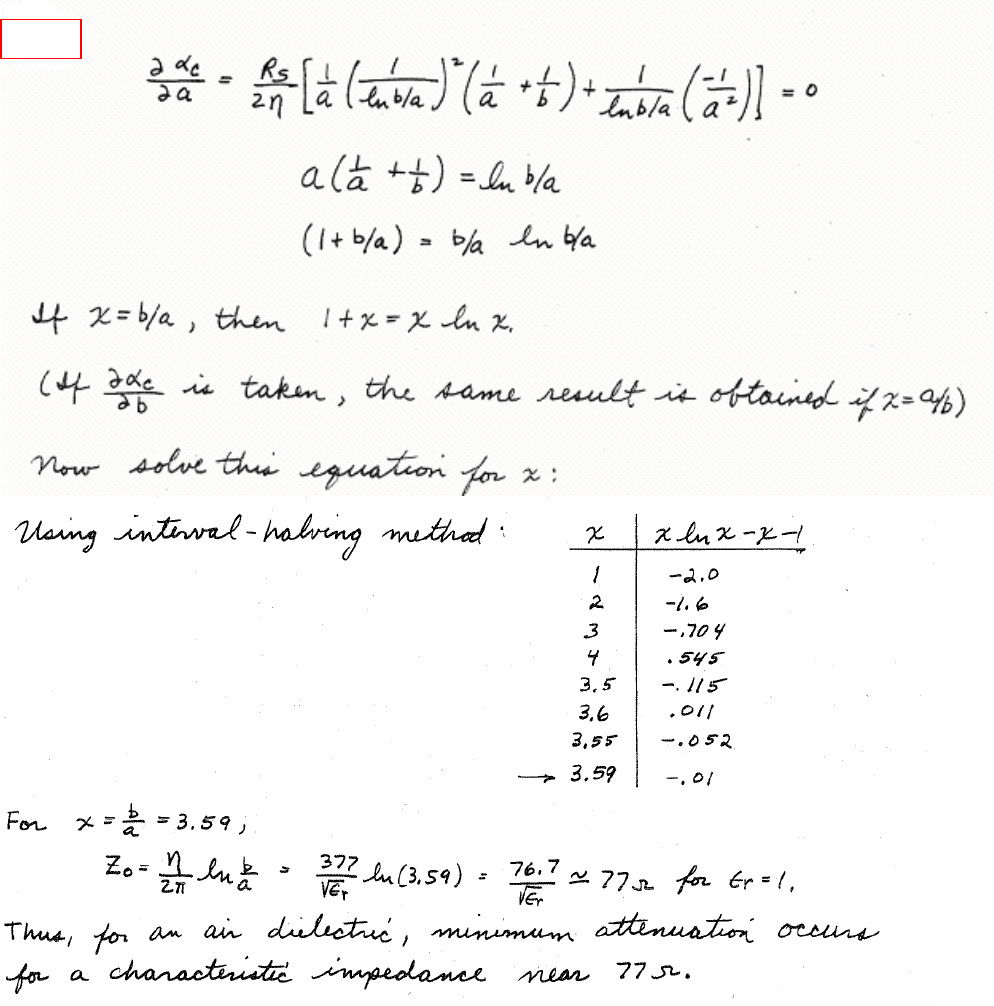 ∂αc/∂a = Rs/2η [1/a (1/ln b/a)² (1/a + 1/b) + 1/ln b/a (-1/a²)] = 0
a(1/a + 1/b) = ln b/a
(1 + b/a) = b/a ln b/a
If x = b/a, then 1 + x = x ln x.
(If ∂αc/∂b is taken, the same result is obtained if x = a/b)
Now solve this equation for x:
Using interval-halving method:
x | x ln x - x - 1
1 | -2.0
2 | -1.6
3 | -.704
4 | .545
3.5 | -.115
3.6 | .011
3.55 | -.052
→ 3.59 | -.01
For x = b/a = 3.59,
Z₀ = η/2π ln b/a = 377/√εr ln(3.59) = 76.7/√εr ≃ 77Ω for εr = 1.
Thus, for an air dielectric, minimum attenuation occurs
for a characteristic impedance near 77Ω.